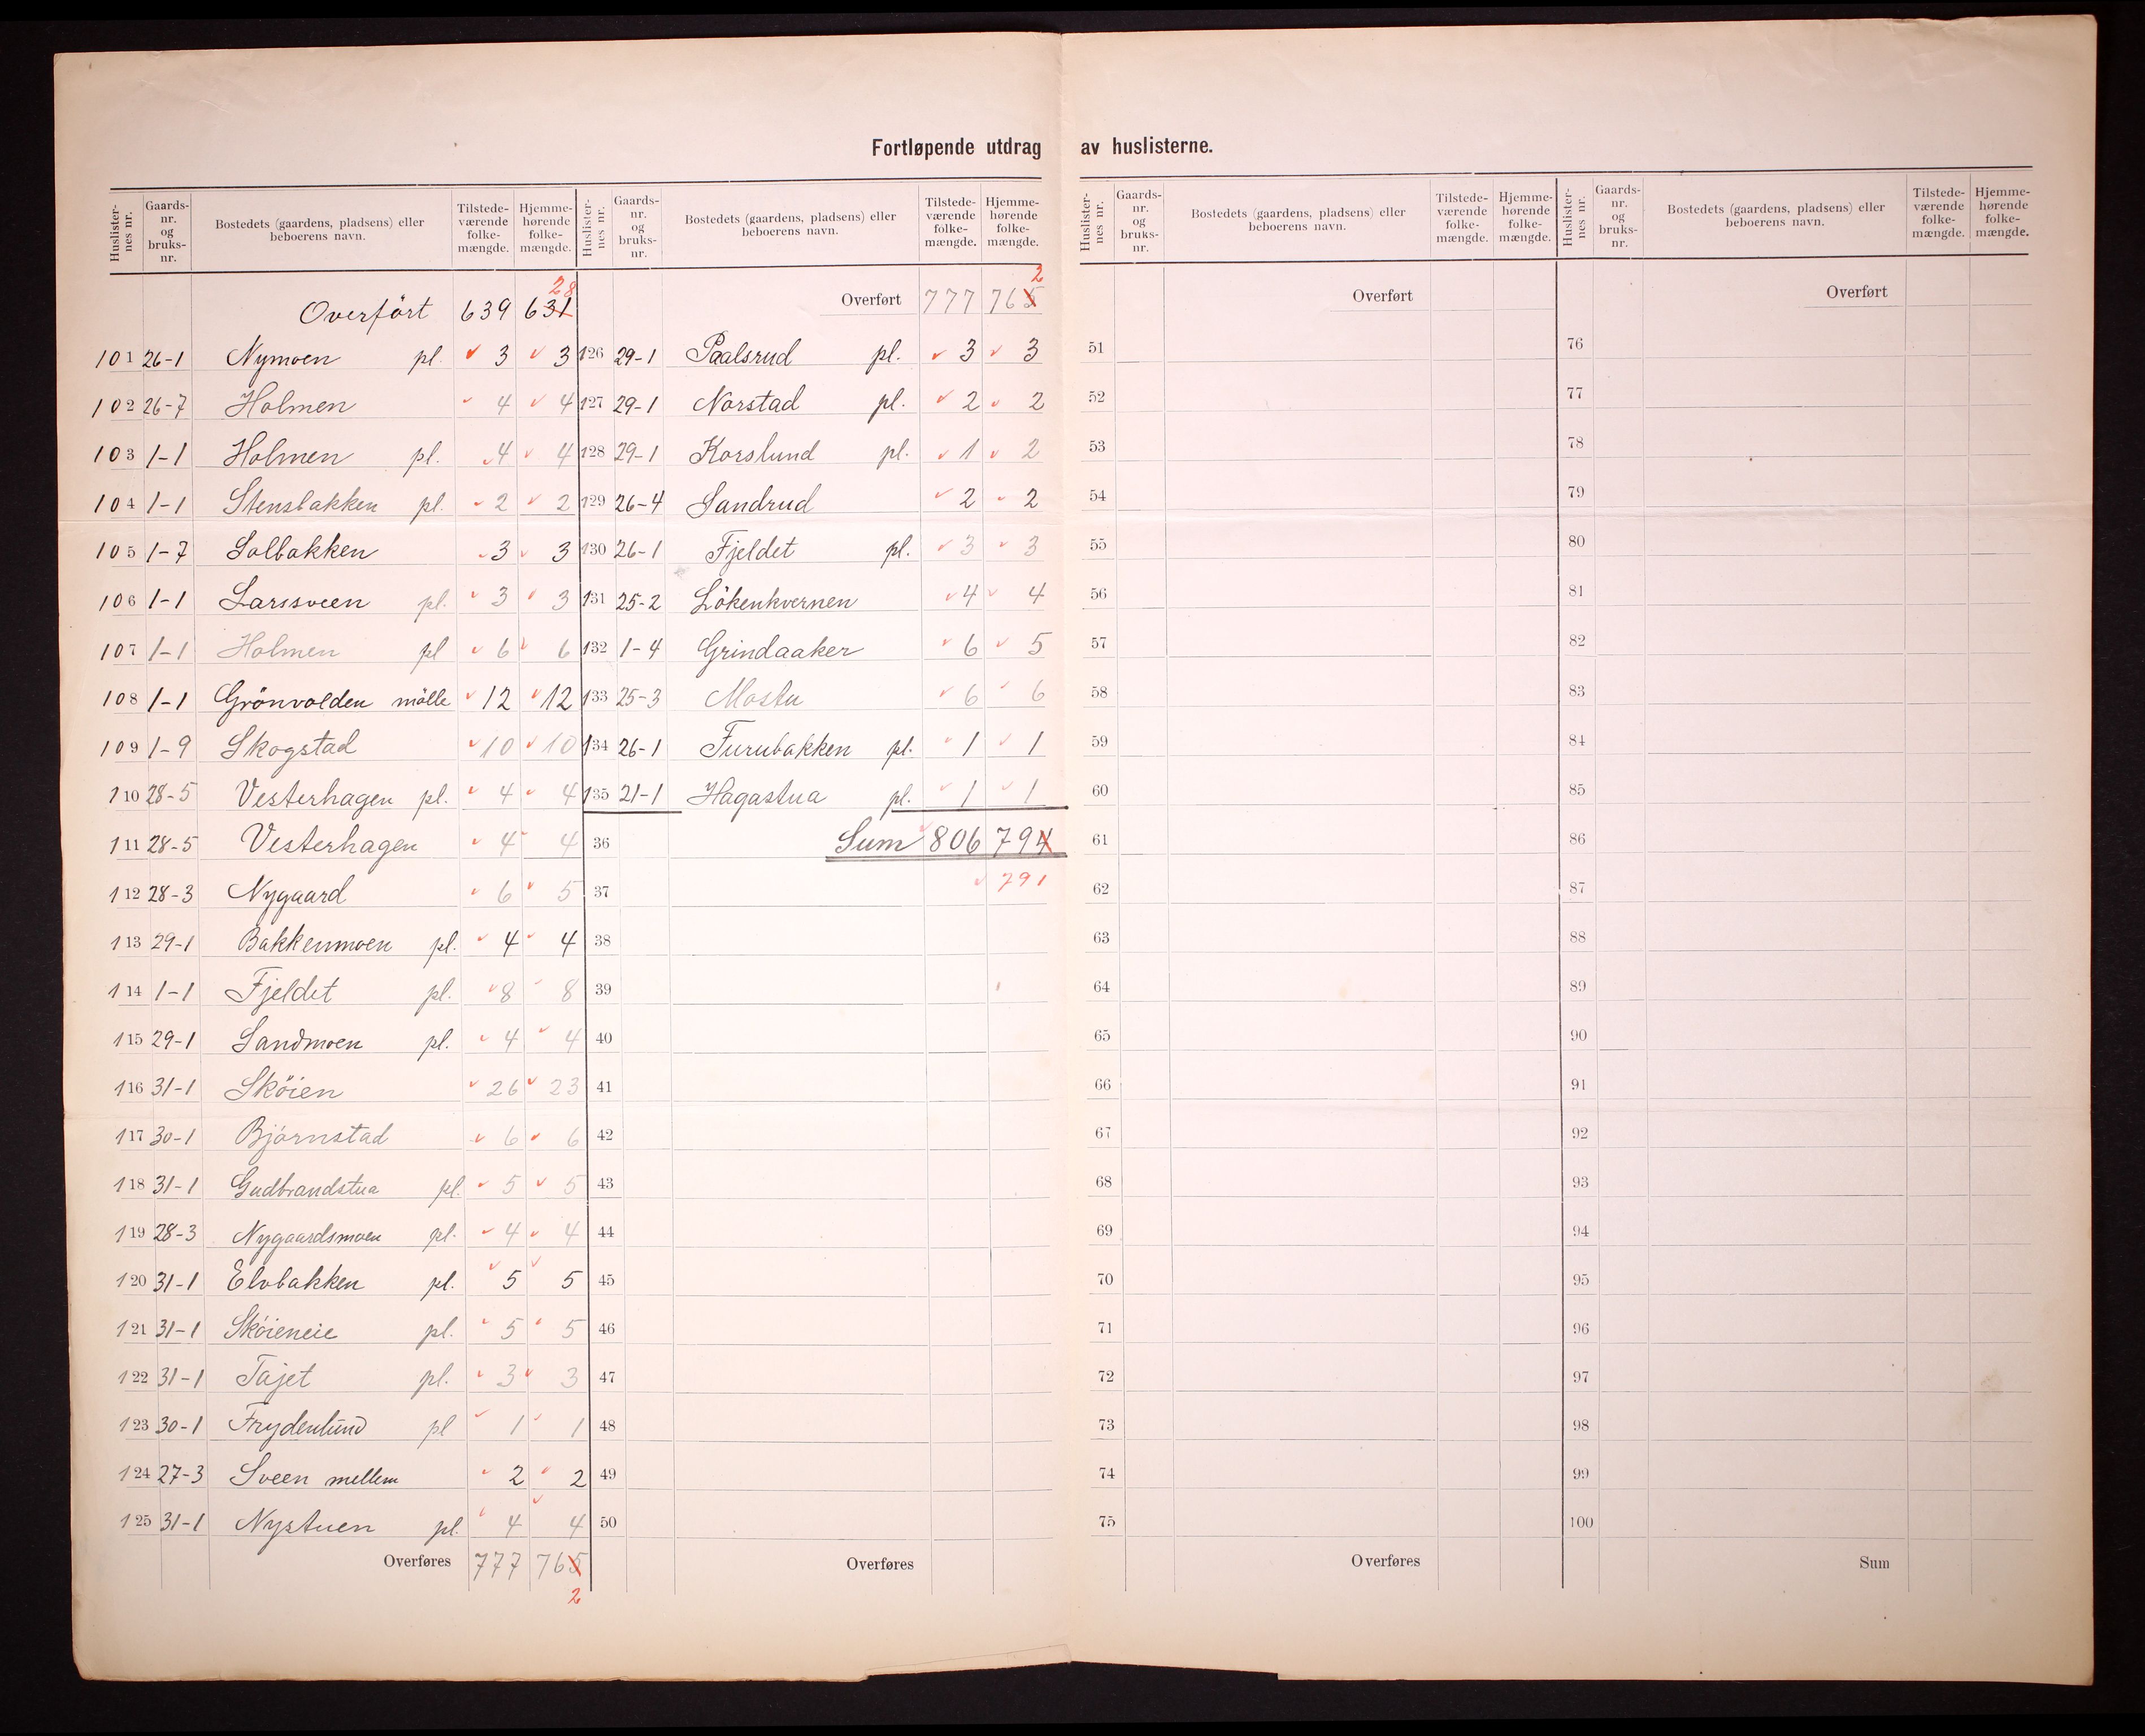 Fortløpende utdrag av huslisterne.
Huslister-nes nr. Gaards-nr. og bruks-nr. Bostedets (gaardens, pladsens) eller beboerens navn. Tilstede-værende folke-mængde. Hjemme-hørende folke-mængde.
28
Overført 639 631
101 26-1 Nymoen pl. 3 3
102 26-7 Holmen 4 4
103 1-1 Holmen pl. 4 4
104 1-1 Stensbakken pl. 2 2
105 1-7 Solbakken 3 3
106 1-1 Larssveen pl. 3 3
107 1-1 Holmen pl 6 6
108 1-1 Grönvolden mölle 12 12
109 1-9 Skogstad 10 10
110 28-5 Vesterhagen pl. 4 4
111 28-5 Vesterhagen 4 4
112 28-3 Nygaard 6 5
113 29-1 Bakkenmoen pl. 4 4
114 1-1 Fjeldet pl. 8 8
115 29-1 Sandmoen pl. 4 4
116 31-1 Sköien 26 23
117 30-1 Björnstad 6 6
118 31-1 Gudbrandstua pl. 5 5
119 28-3 Nygaardsmoen pl. 4 4
120 31-1 Elvbakken pl. 5 5
121 31-1 Sköieneie pl. 5 5
122 31-1 Tajet pl. 3 3
123 30-1 Frydenlund pl 1 1
124 27-3 Sveen mellem 2 2
125 31-1 Nystuen pl. 4 4
Overføres 777 765
2
Huslister-nes nr. Gaards-nr. og bruks-nr. Bostedets (gaardens, pladsens) eller beboerens navn. Tilstede-værende folke-mængde. Hjemme-hørende folke-mængde.
2
Overført 777 765
126 29-1 Paalsrud pl. 3 3
127 29-1 Norstad pl. 2 2
128 29-1 Korslund pl. 1 2
129 26-4 Sandrud 2 2
130 26-1 Fjeldet pl. 3 3
131 25-2 Lökenkvernen 4 4
132 1-4 Grindaaker 6 5
133 25-3 Mostu 6 6
134 26-1 Furubakken pl. 1 1
135 21-1 Hagastua pl. 1 1
36 Sum 806 794
37 791
38
39
40
41
42
43
44
45
46
47
48
49
50
Overføres
Huslister-nes nr. Gaards-nr. og bruks-nr. Bostedets (gaardens, pladsens) eller beboerens navn. Tilstede-værende folke-mængde. Hjemme-hørende folke-mængde.
Overført
51
52
53
54
55
56
57
58
59
60
61
62
63
64
65
66
67
68
69
70
71
72
73
74
75
Overføres
Huslister-nes nr. Gaards-nr. og bruks-nr. Bostedets (gaardens, pladsens) eller beboerens navn. Tilstede-værende folke-mængde. Hjemme-hørende folke-mængde.
Overført
76
77
78
79
80
81
82
83
84
85
86
87
88
89
90
91
92
93
94
95
96
97
98
99
100
Sum